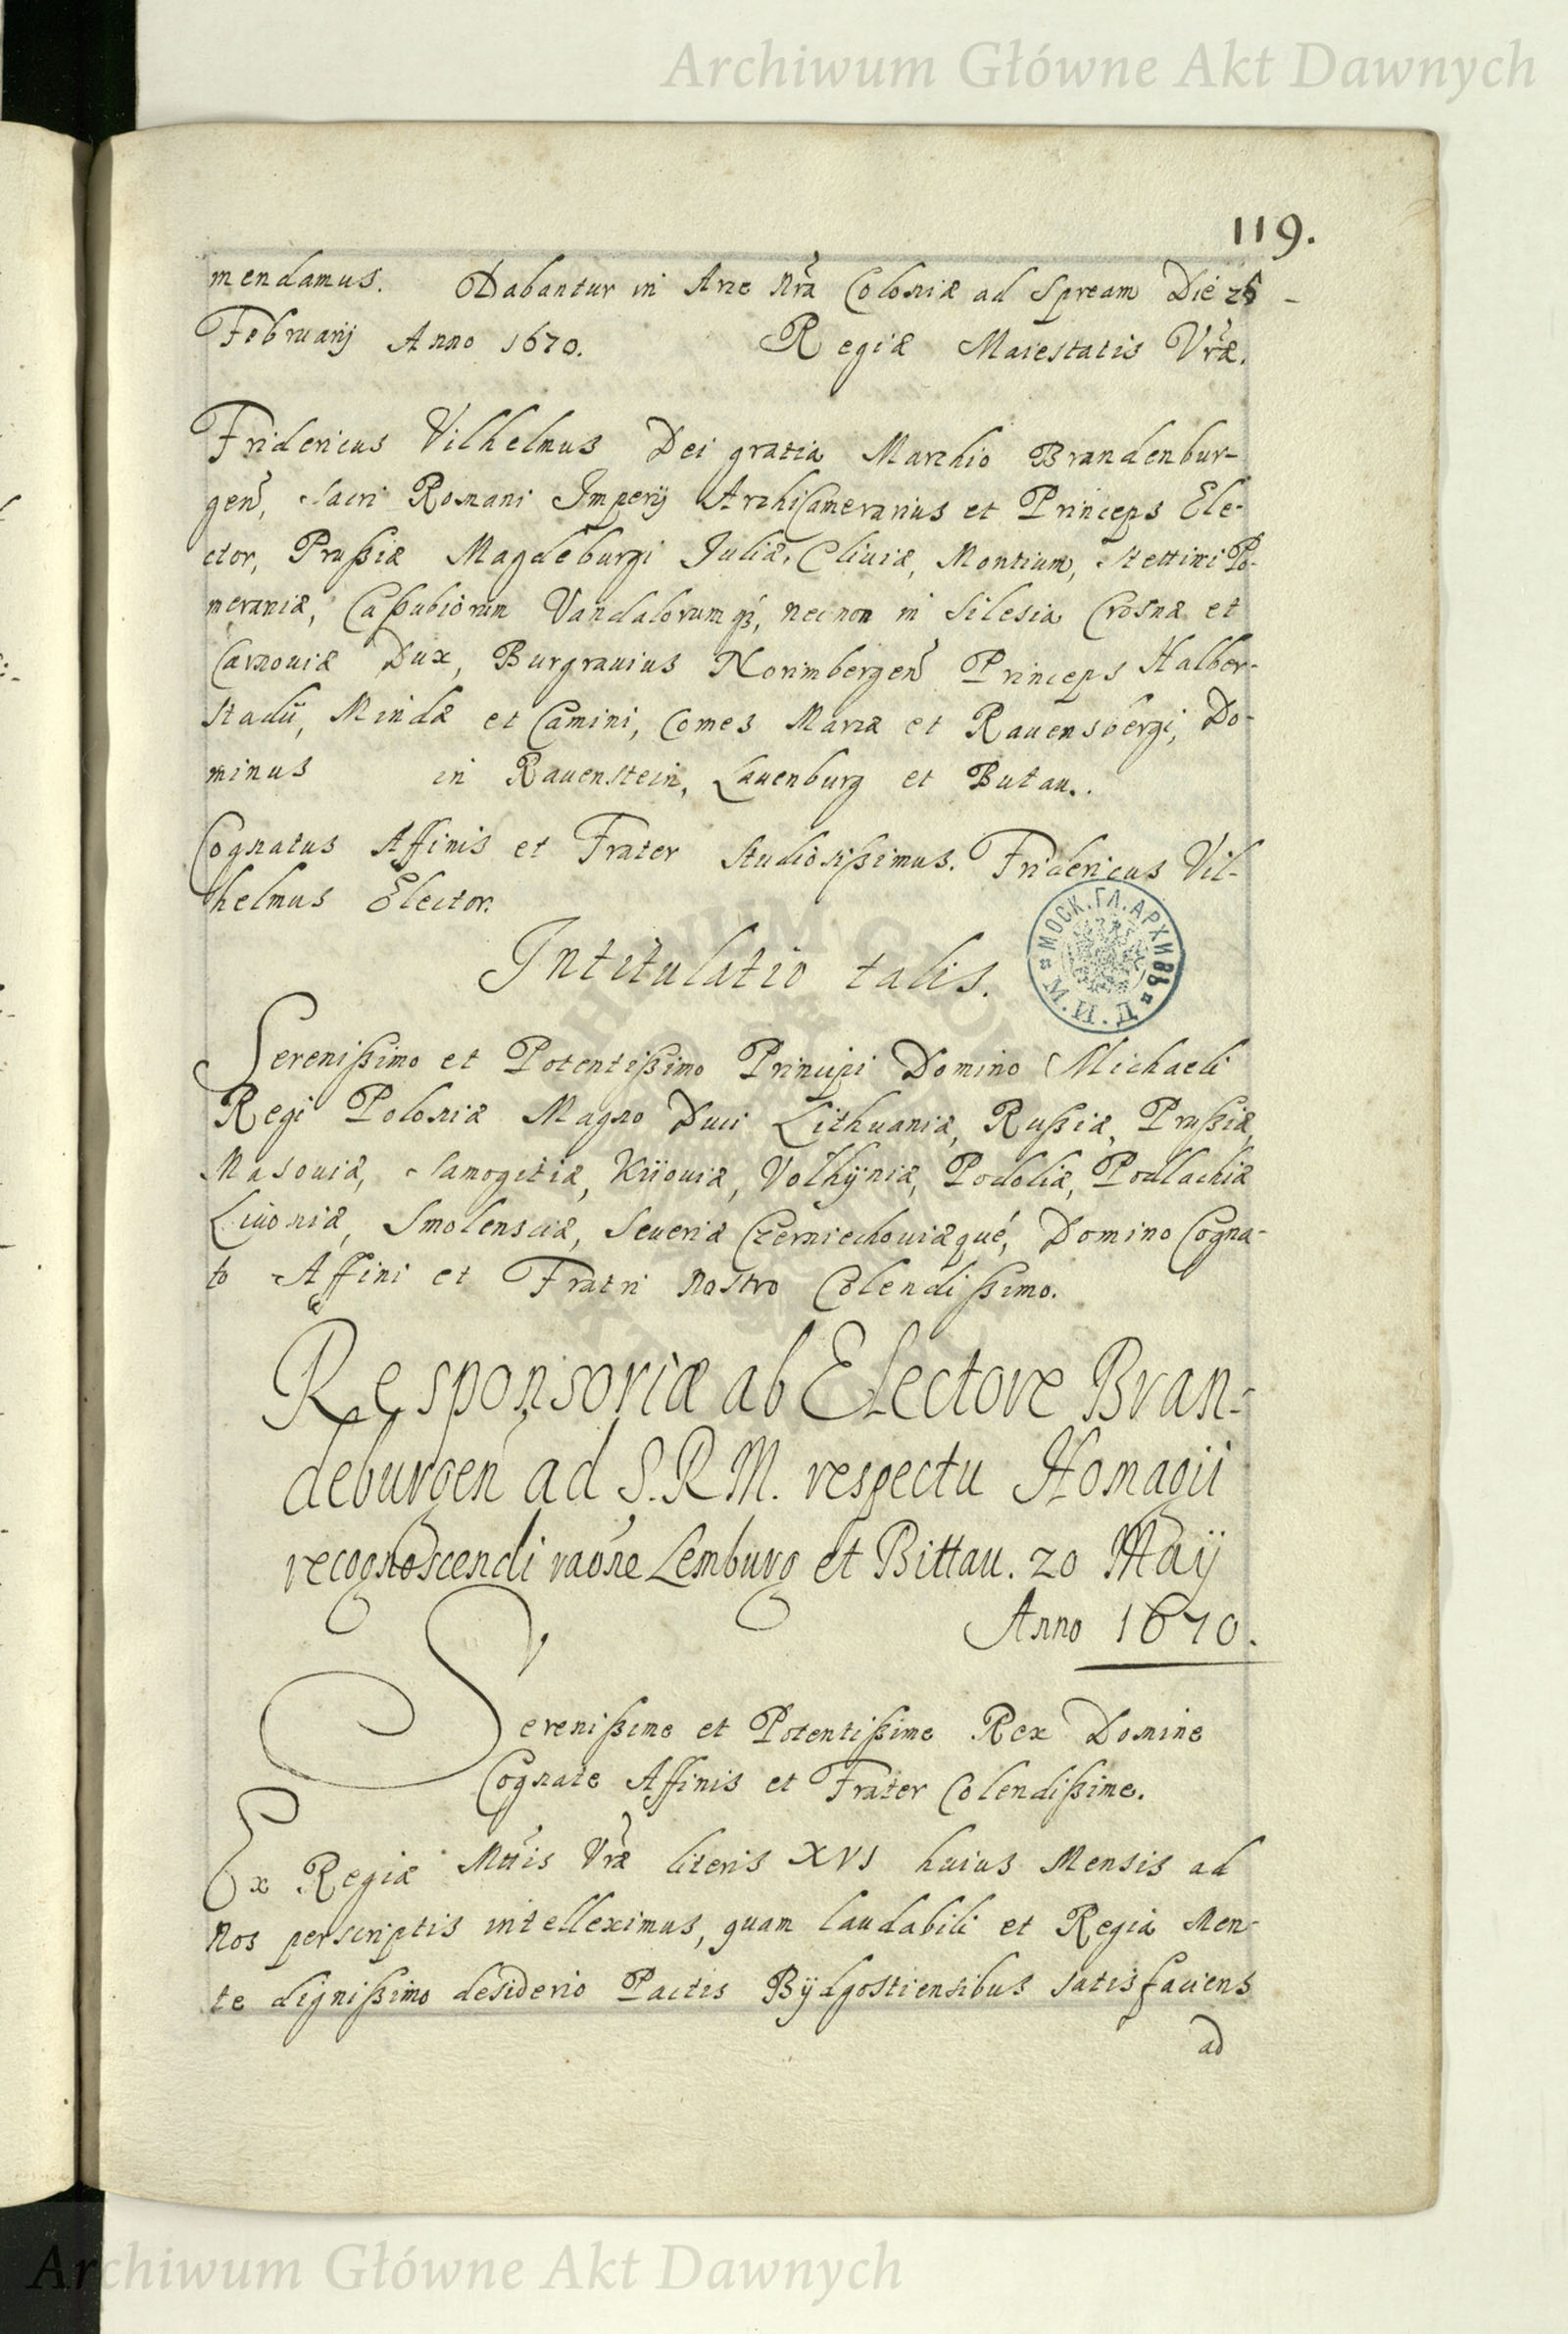 Archiwum Główne Akt Dawnych
119.
mendamus. Dabantur in Arce Nrã Coloniæ ad Spream Die 26
Februarij Anno 1670. Regiæ Maiestatis Vræ.
Fridericus Vilhelmus Dei gratia Marchio Brandenbur-
gen, Sacri Romani Imperij ArchiCamerarius et Princeps Ele-
ctor, Prußiæ Magdeburgi Juliæ, Cliuiæ, Montium, Stettini Po-
meraniæ, Caßubiorum Vandalorumq3, necnon in Silesia Crosnæ et
Carnouiæ Dux, Burgrauius Norimbergen Princeps Halber-
stadii, Mindæ et Camini, Comes Marcæ et Rauensbergi, Do-
minus in Rauenstein, Lauenburg et Butau..
Cognatus Affinis et Frater Studiosißimus. Fridericus Vil-
helmus Elector.
Intitulatio talis.
МОСК. ГЛ. АРХИВЪ М. И. Д.
Serenißimo et Potentißimo Principi Domino Michaeli
Regi Poloniæ Magno Duci Lithuaniæ, Rußiæ, Prußiæ,
Masouiæ, Samogitiæ, Kiiouiæ, Volhÿniæ, Podoliæ, Podlachiæ
Liuoniæ, Smolensciæ, Seueriæ Czerniechouiæqué, Domino Cogna-
to Affini et Fratri nostro Colendißimo.
Responsoriæ ab Electore Bran-
deburgen ad S.R.M. respectu Homagii
recognoscendi raõne Lemburg et Bittau. 20 Maij
Anno 1670.
Serenißime et Potentißime Rex Domine
Cognate Affinis et Frater Colendißime.
Ex Regiæ Mttis Vræ literis XVI huius Mensis ad
nos perscriptis intelleximus, quam laudabili et Regia Men-
te dignißimo desiderio Pactis Bÿdgostiensibus satisfaciens
ad
Archiwum Główne Akt Dawnych